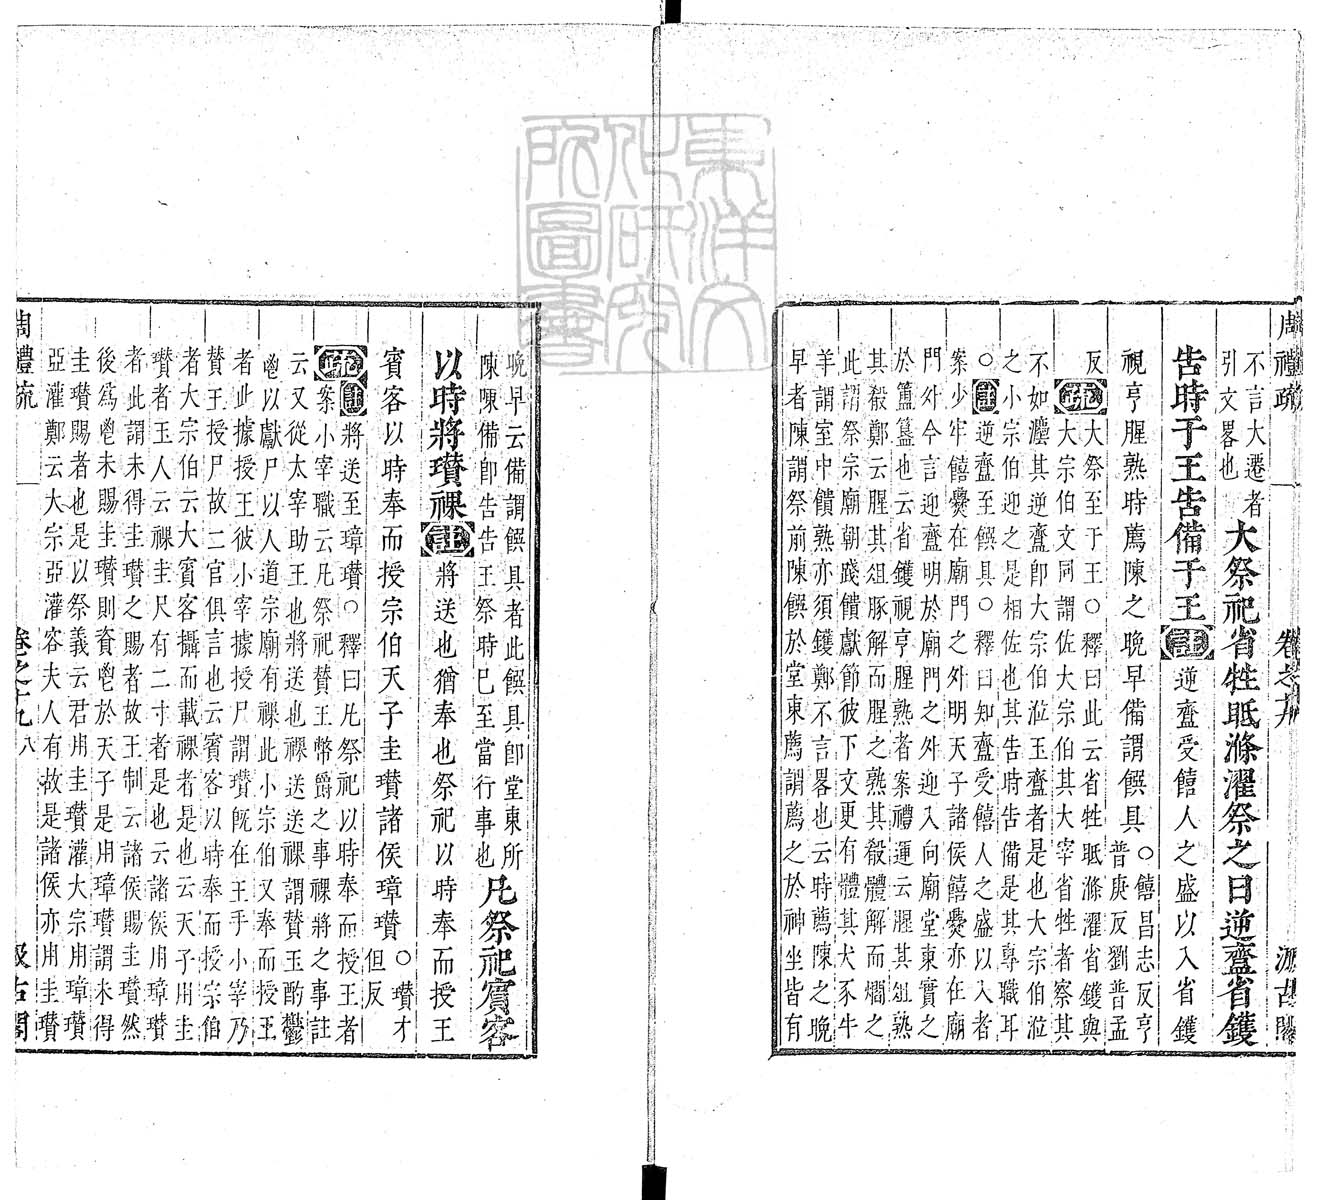 周禮疏 卷之十九 汲古閣
不言大遷者
引文畧也
大祭祀省牲眡滌濯祭之日逆齍省鑊
告時于王告備于王
註
逆齍受饎人之盛以入省鑊
視亨腥熟時薦陳之晚早備謂饌具
○饎昌志反亨
普庚反劉普孟
反
疏
大祭至于王○釋曰此云省牲眡滌濯省鑊與
大宗伯文同謂佐大宗伯其大宰省牲者察其
不如灋其逆齍卽大宗伯涖玉齍者是也大宗伯涖
之小宗伯迎之是相佐也其告時告備是其專職耳
○註逆齍至饌具○釋曰知齍受饎人之盛以入者
案少牢饎爨在廟門之外明天子諸侯饎爨亦在廟
門外今言迎齍明於廟門之外迎入向廟堂東實之
於簠簋也云省鑊視亨腥熟者案禮運云腥其俎熟
其殽鄭云腥其俎豚解而腥之熟其殽體解而爓之
此謂祭宗廟朝踐饋獻節彼下文更有體其犬豕牛
羊謂室中饋熟亦須鑊鄭不言畧也云時薦陳之晚
早者陳謂祭前陳饌於堂東薦謂薦之於神坐皆有
晚早云備謂饌具者此饌具卽堂東所
陳陳備卽告告王祭時已至當行事也
凡祭祀賓客
以時將瓚祼
註
將送也猶奉也祭祀以時奉而授王
賓客以時奉而授宗伯天子圭瓚諸侯璋瓚
○瓚才
但反
疏
註將送至璋瓚○釋曰凡祭祀以時奉而授王者
案小宰職云凡祭祀贊王幣爵之事祼將之事註
云又從太宰助王也將送也祼送送祼謂贊王酌鬱
鬯以獻尸以人道宗廟有祼此小宗伯又奉而授王
者此據授王彼小宰據授尸謂瓚旣在王手小宰乃
贊王授尸故二官俱言也云賓客以時奉而授宗伯
者大宗伯云大賓客攝而載祼者是也云天子用圭
瓚者玉人云祼圭尺有二寸者是也云諸侯用璋瓚
者此謂未得圭瓚之賜者故王制云諸侯賜圭瓚然
後爲鬯未賜圭瓚則資鬯於天子是用璋瓚謂未得
圭瓚賜者也是以祭義云君用圭瓚灌大宗用璋瓚
亞灌鄭云大宗亞灌容夫人有故是諸侯亦用圭瓚
周禮疏 卷之十九 八 汲古閣
東洋文
化研究
所圖書